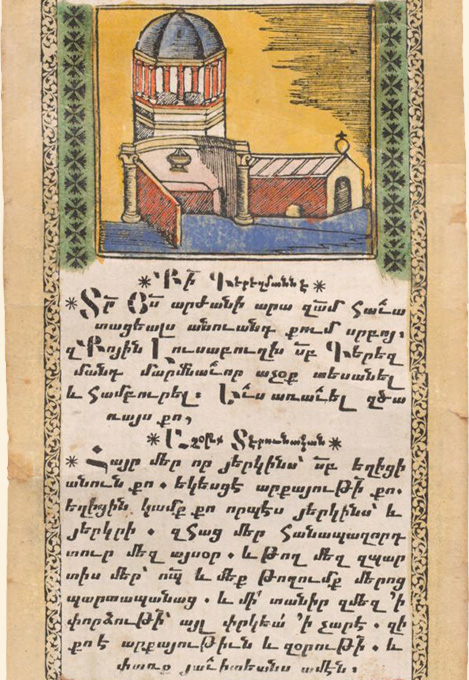 ✳ Քի Գերեզմանն է ✳
✳ Տր Յս արժանի արա զամ հաւա
տացեալս անուանդ քում սրբոյ։
զՔոյին Լուսաբուղխ սբ Գերեզ
մանդ մարմնաւոր աչօք տեսանել
և համբուրել։ ԵՒս առաւել զծա
ռայս քո,
✳ Աղօթք Տէրունական ✳
✳ Հայր մեր որ յերկինս՝ սբ եղիցի
անուն քո. եկեսցէ արքայութի քո.
եղիցին կամք քո որպէս յերկինս՝ և
յերկրի. զհաց մեր հանապազորդ
տուր մեզ այսօր. և թող մեզ զպար
տիս մեր՝ ոպ և մեք թողումք մերոց
պարտապանաց. և մի՛ տանիր զմեզ ՚ի
փորձութի՝ այլ փրկեա ՚ի չարէ. զի
քո է արքայութիւն և զօրութի. և
փառք յաւիտեանս ամէն։